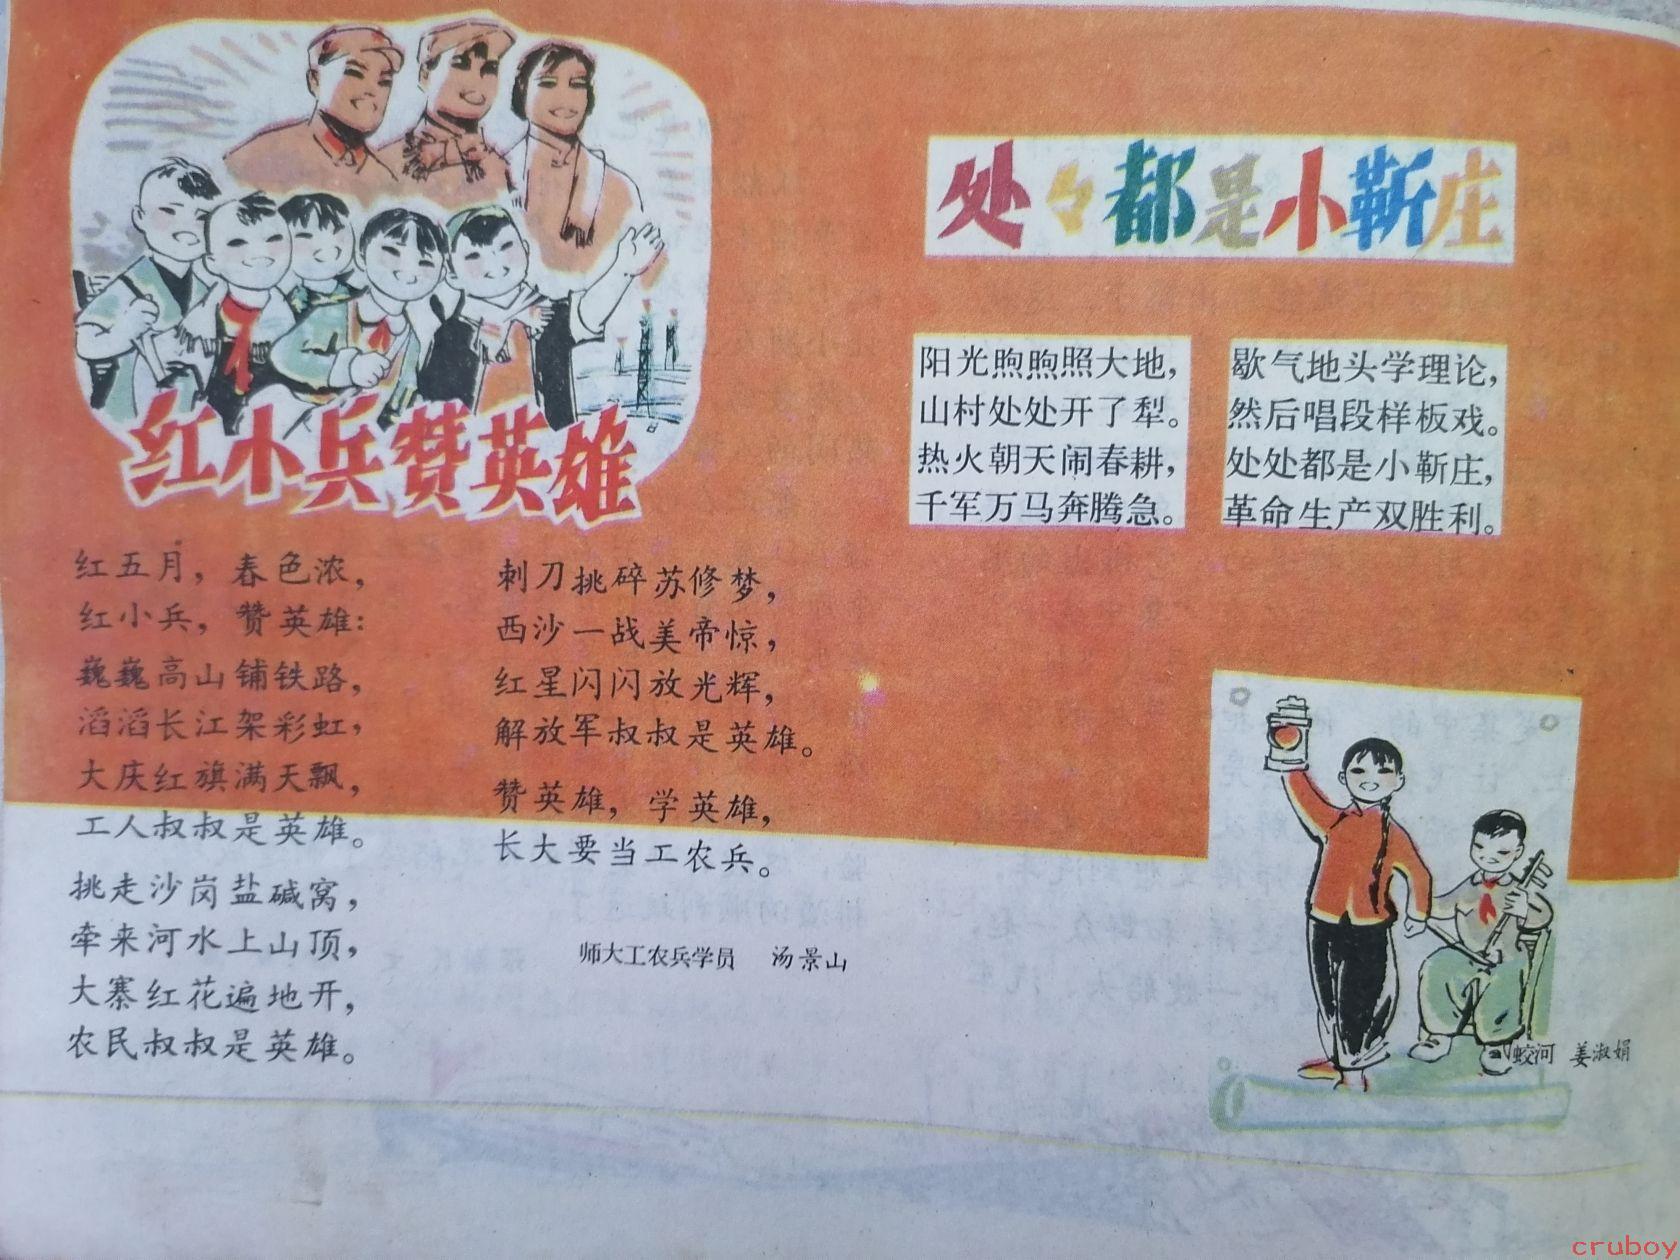 红小兵赞英雄
红五月，春色浓，
红小兵，赞英雄：
巍巍高山铺铁路，
滔滔长江架彩虹，
大庆红旗满天飘，
工人叔叔是英雄。
挑走沙岗盐碱窝，
牵来河水上山顶，
大寨红花遍地开，
农民叔叔是英雄。
刺刀挑碎苏修梦，
西沙一战美帝惊，
红星闪闪放光辉，
解放军叔叔是英雄。
赞英雄，学英雄，
长大要当工农兵。
师大工农兵学员 汤景山
处々都是小靳庄
阳光煦煦照大地，
山村处处开了犁。
热火朝天闹春耕，
千军万马奔腾急。
歇气地头学理论，
然后唱段样板戏。
处处都是小靳庄，
革命生产双胜利。
蛟河 姜淑娟
cruboy